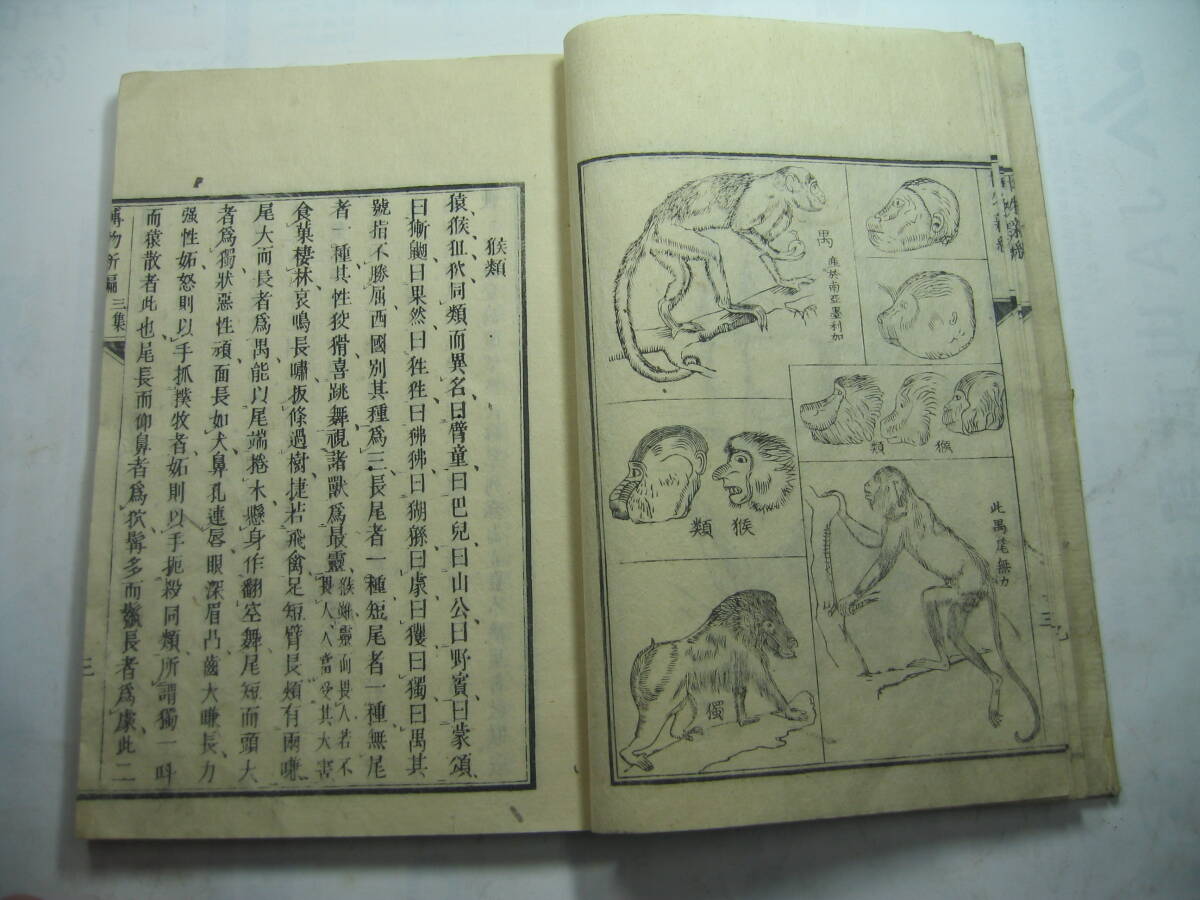 猴類
猿猴狙狄同類而異名曰臂童曰巴兒曰山公曰野賓曰蒙頌
曰獑䶉曰果然曰狌狌曰狒狒曰猢猻曰豦曰玃曰獨曰禺其
號指不勝屈西國別其種爲三長尾者一種短尾者一種無尾
者一種其性狡猾喜跳舞視諸獸爲最靈猴雖靈而畏人若不畏人人當受其大害
食菓棲林哀鳴長嘯扳條過樹捷若飛禽足短臂長頰有兩嗛
尾大而長者爲禺能以尾端捲木懸身作翻空舞尾短而頭大
者爲獨狀惡性頑面長如犬鼻孔連唇眼深眉凸齒大嗛長力
强性妬怒則以手抓撲牧者妬則以手扼殺同類所謂獨一呌
而猿散者此也尾長而仰鼻者爲狖髯多而鬣長者爲豦此二
博物新編
三集
三
禺
產於南亞墨利加
猴類
猴類
此禺尾無力
獨
三